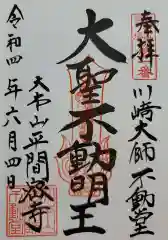 奉拝
川崎大師不動堂
大聖不動明王
大本山平間證寺
令和四年六月四日